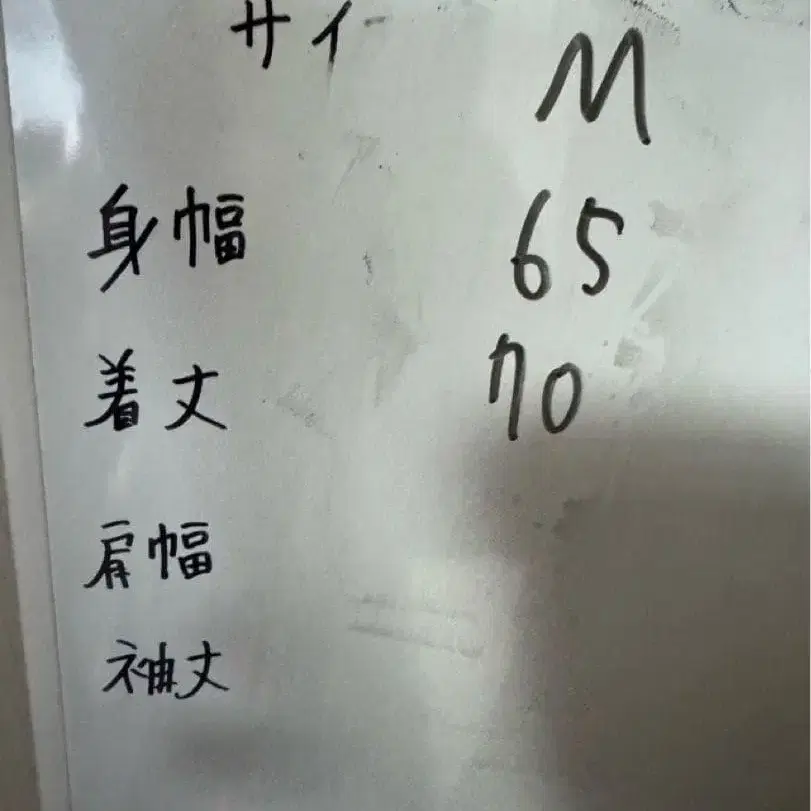 サイ M
身幅 65
着丈 70
肩幅
袖丈